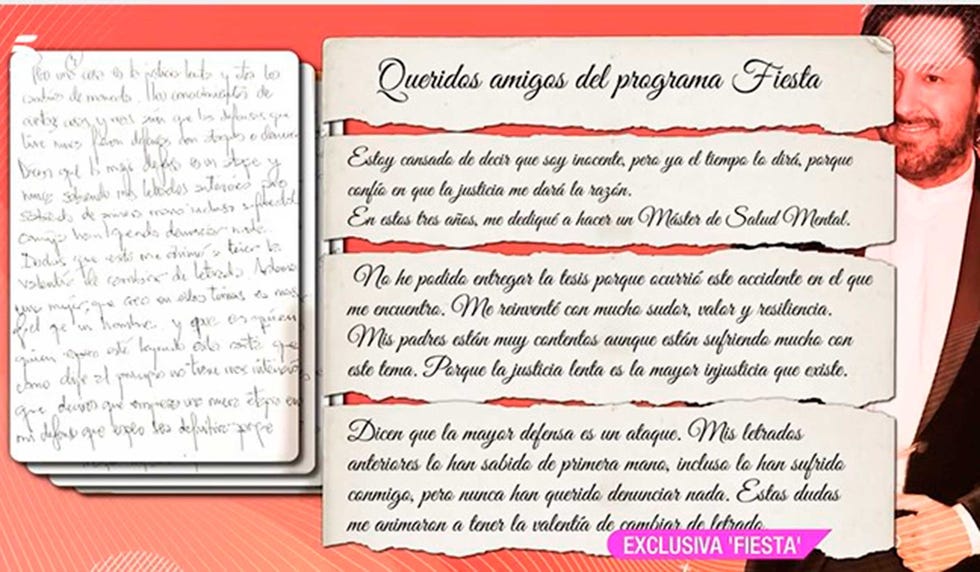 Pero una cosa es la justicia lenta y otra los
cambios de
conocimientos de
ciertas cosas y más aún que las defensas que
tuve nunca
Dicen que la mejor defensa es un ataque y
nunca sabiendo mis letrados anteriores
sabiendo de primera mano incluso sufriendo
conmigo han querido denunciar nada.
Dudas que me animó a tener la
valentía de cambiar de letrado.
una mujer, que creo en estos temas es más
fiel que un hombre. y que es quien
quien esté leyendo esta carta que
como dije al principio no tiene
que deciros que empieza una nueva etapa en
mi defensa que espero sea definitiva porque
Queridos amigos del programa Fiesta
Estoy cansado de decir que soy inocente, pero ya el tiempo lo dirá, porque
confío en que la justicia me dará la razón.
En estos tres años, me dediqué a hacer un Máster de Salud Mental.
No he podido entregar la tesis porque ocurrió este accidente en el que
me encuentro. Me reinventé con mucho sudor, valor y resiliencia.
Mis padres están muy contentos aunque están sufriendo mucho con
este tema. Porque la justicia lenta es la mayor injusticia que existe.
Dicen que la mayor defensa es un ataque. Mis letrados
anteriores lo han sabido de primera mano, incluso lo han sufrido
conmigo, pero nunca han querido denunciar nada. Estas dudas
me animaron a tener la valentía de cambiar de letrado.
EXCLUSIVA 'FIESTA'